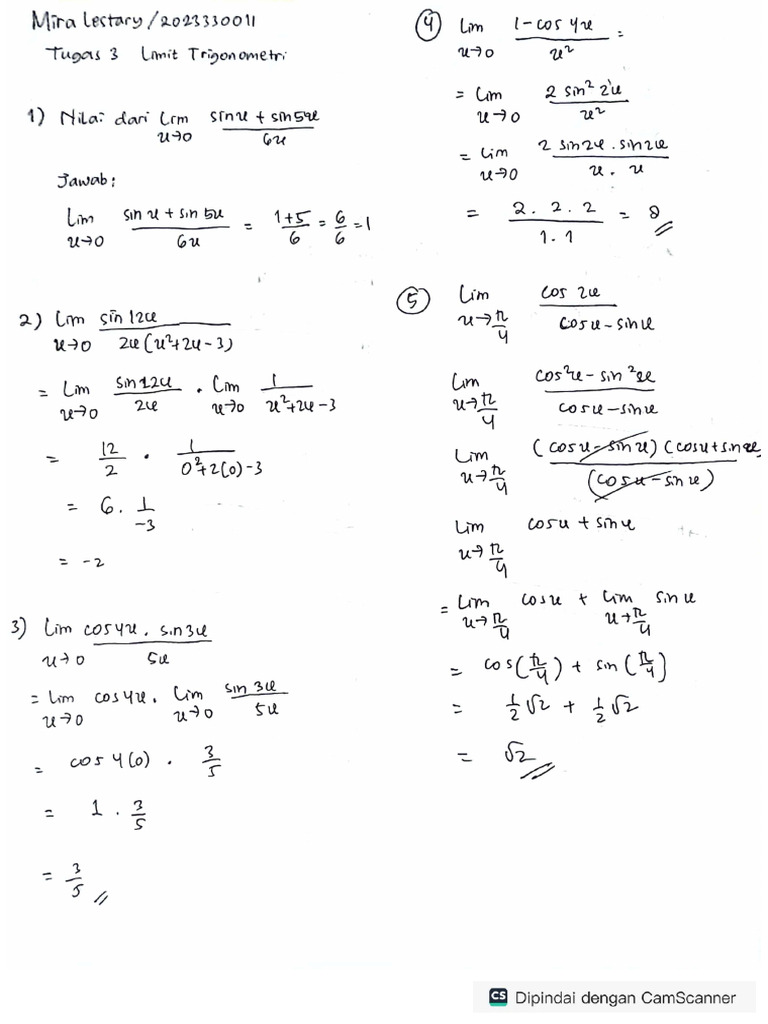 Mira Lestary / 2023330011
Tugas 3 Limit Trigonometri
1) Nilai dari Lim x→0 (sin x + sin 5x)/6x
Jawab:
Lim x→0 (sin x + sin 5x)/6x = (1+5)/6 = 6/6 = 1
2) Lim x→0 sin 12x / 2x(x²+2x-3)
= Lim x→0 sin 12x/2x . Lim x→0 1/(x²+2x-3)
= 12/2 . 1/(0²+2(0)-3)
= 6 . 1/-3
= -2
3) Lim x→0 cos 4x . sin 3x / 5x
= Lim x→0 cos 4x . Lim x→0 sin 3x/5x
= cos 4(0) . 3/5
= 1 . 3/5
= 3/5 //
④ Lim x→0 (1-cos 4x)/x² =
= Lim x→0 2 sin² 2x / x²
= Lim x→0 2 sin 2x . sin 2x / x . x
= 2 . 2 . 2 / 1 . 1 = 8 //
⑤ Lim x→π/4 cos 2x / cos x - sin x
Lim x→π/4 cos²x - sin²x / cos x - sin x
Lim x→π/4 (cos x - sin x) (cos x + sin x) / (cos x - sin x)
Lim x→π/4 cos x + sin x
= Lim x→π/4 cos x + Lim x→π/4 sin x
= cos(π/4) + sin(π/4)
= 1/2 √2 + 1/2 √2
= √2 //
CS Dipindai dengan CamScanner